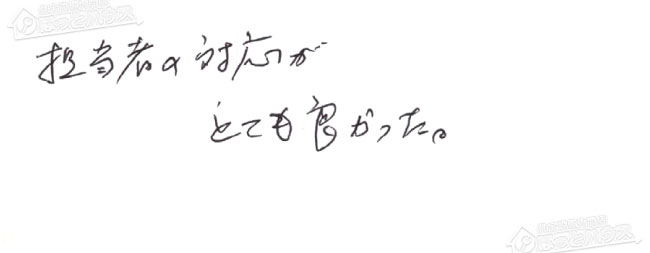 担当者の対応が
とても良かった。